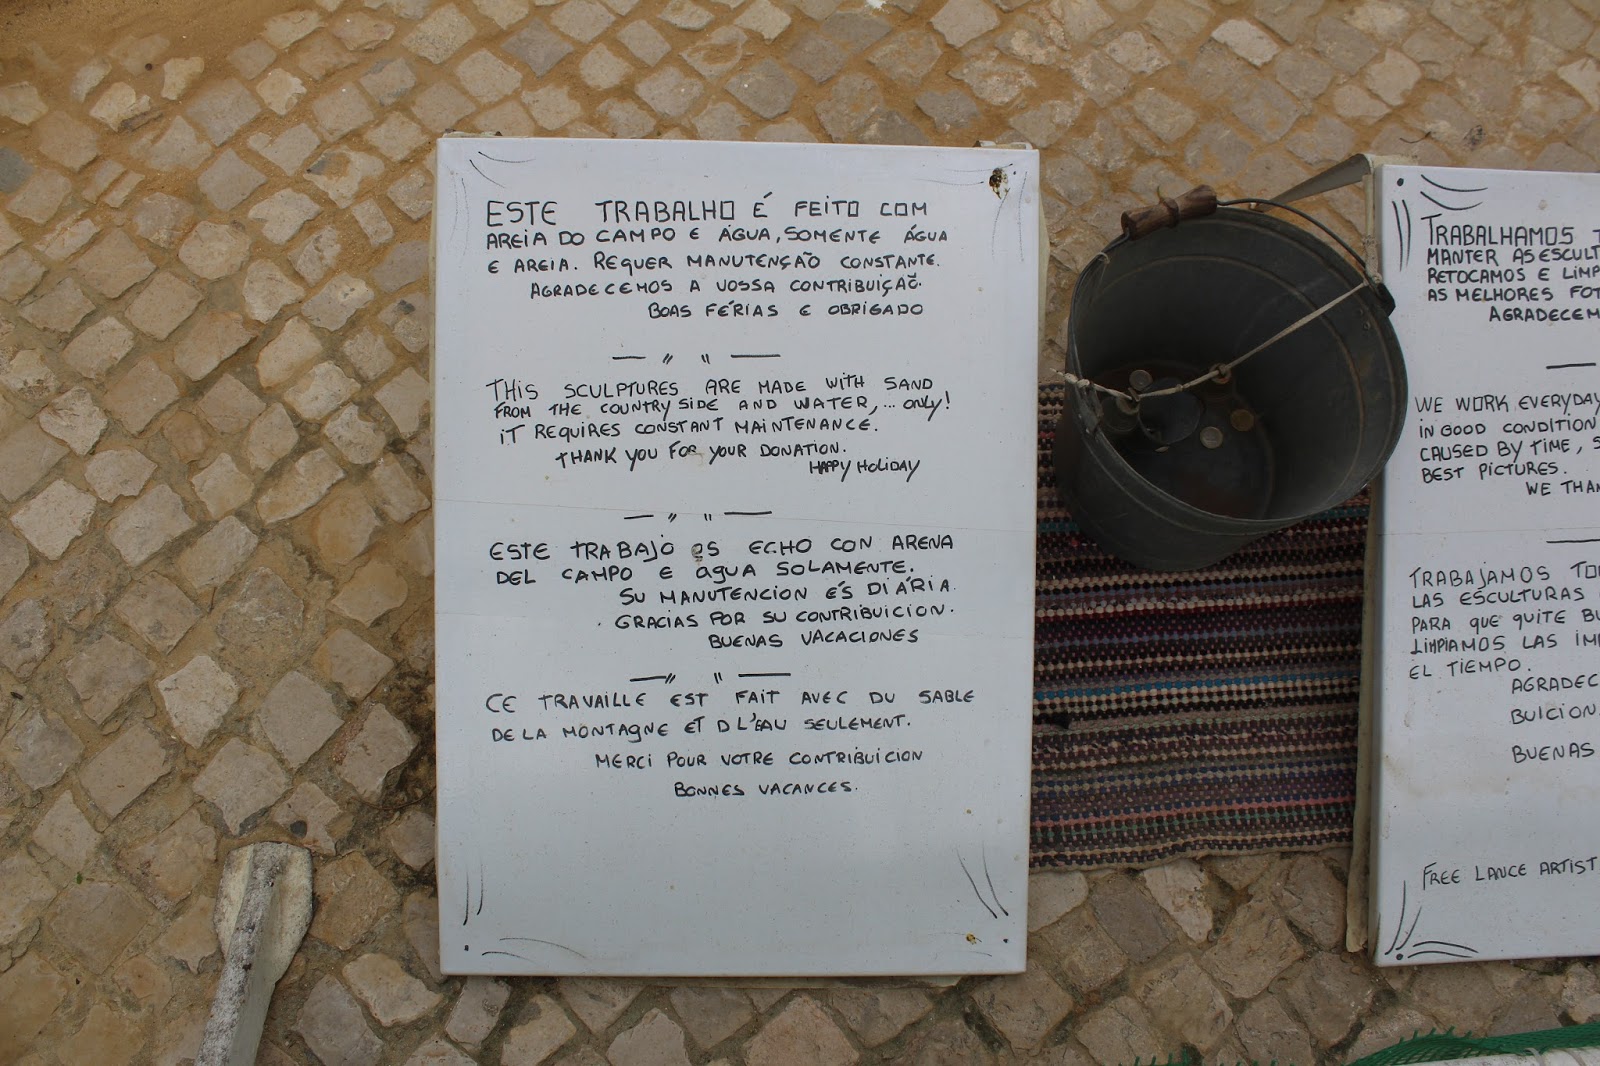 ESTE TRABALHO É FEITO COM
AREIA DO CAMPO E ÁGUA, SOMENTE ÁGUA
E AREIA. REQUER MANUTENÇÃO CONSTANTE.
AGRADECEMOS A VOSSA CONTRIBUIÇÃO.
BOAS FÉRIAS E OBRIGADO
THIS SCULPTURES ARE MADE WITH SAND
FROM THE COUNTRY SIDE AND WATER,... ONLY!
IT REQUIRES CONSTANT MAINTENANCE.
THANK YOU FOR YOUR DONATION.
HAPPY HOLIDAY
ESTE TRABAJO ES ECHO CON ARENA
DEL CAMPO E AGUA SOLAMENTE.
SU MANUTENCION ÉS DIÁRIA.
GRACIAS POR SU CONTRIBUICION.
BUENAS VACACIONES
CE TRAVAILLE EST FAIT AVEC DU SABLE
DE LA MONTAGNE ET D L'EAU SEULEMENT.
MERCI POUR VOTRE CONTRIBUICION
BONNES VACANCES.
TRABALHAMOS T
MANTER AS ESCULT
RETOCAMOS E LIMP
AS MELHORES FOT
AGRADECEM
WE WORK EVERYDAY
IN GOOD CONDITION
CAUSED BY TIME, S
BEST PICTURES.
WE THAN
TRABAJAMOS TO
LAS ESCULTURAS
PARA QUE QUITE BU
LIMPIAMOS LAS IM
EL TIEMPO.
AGRADEC
BUICION.
BUENAS
FREE LANCE ARTIST